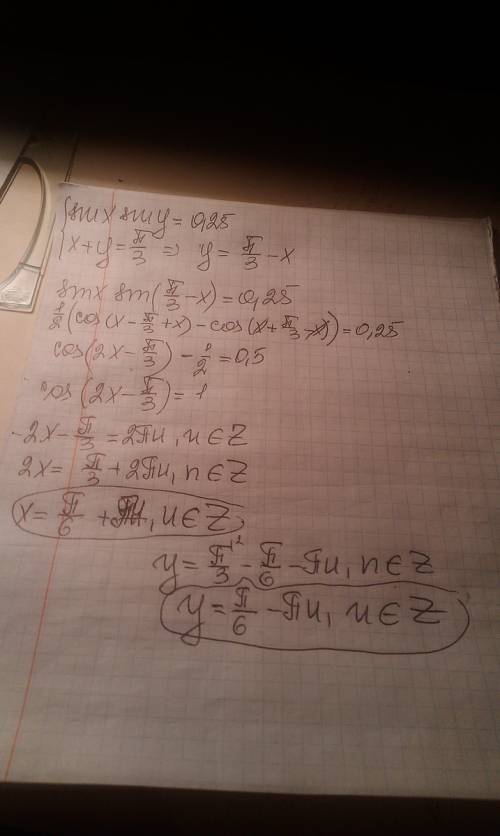 { sinx siny = 0,25
x+y = π/3 ⇒ y = π/3 - x
sinx sin(π/3 - x) = 0,25
1/2 (cos(x - π/3 + x) - cos(x + π/3 - x)) = 0,25
cos(2x - π/3) - 1/2 = 0,5
cos(2x - π/3) = 1
-2x - π/3 = 2πn, n ∈ Z
2x = π/3 + 2πn, n ∈ Z
x = π/6 + πn, n ∈ Z
y = π/3 - π/6 - πn, n ∈ Z
y = π/6 - πn, n ∈ Z